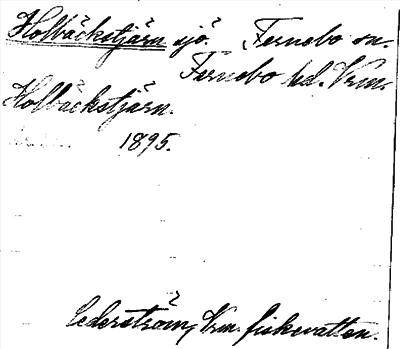 Holbäckstjärn sjö. Fernebo sn.
Fernebo hd. Vrm.
Holbäckstjärn.
1895.
Cederström, Vrm. fiskevatten.